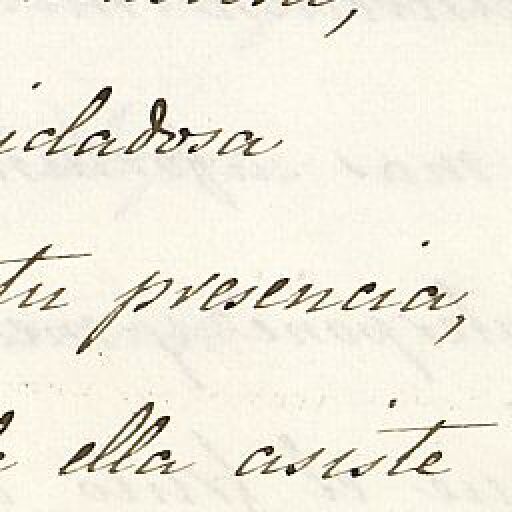 idadosa
tu presencia,
ella asiste